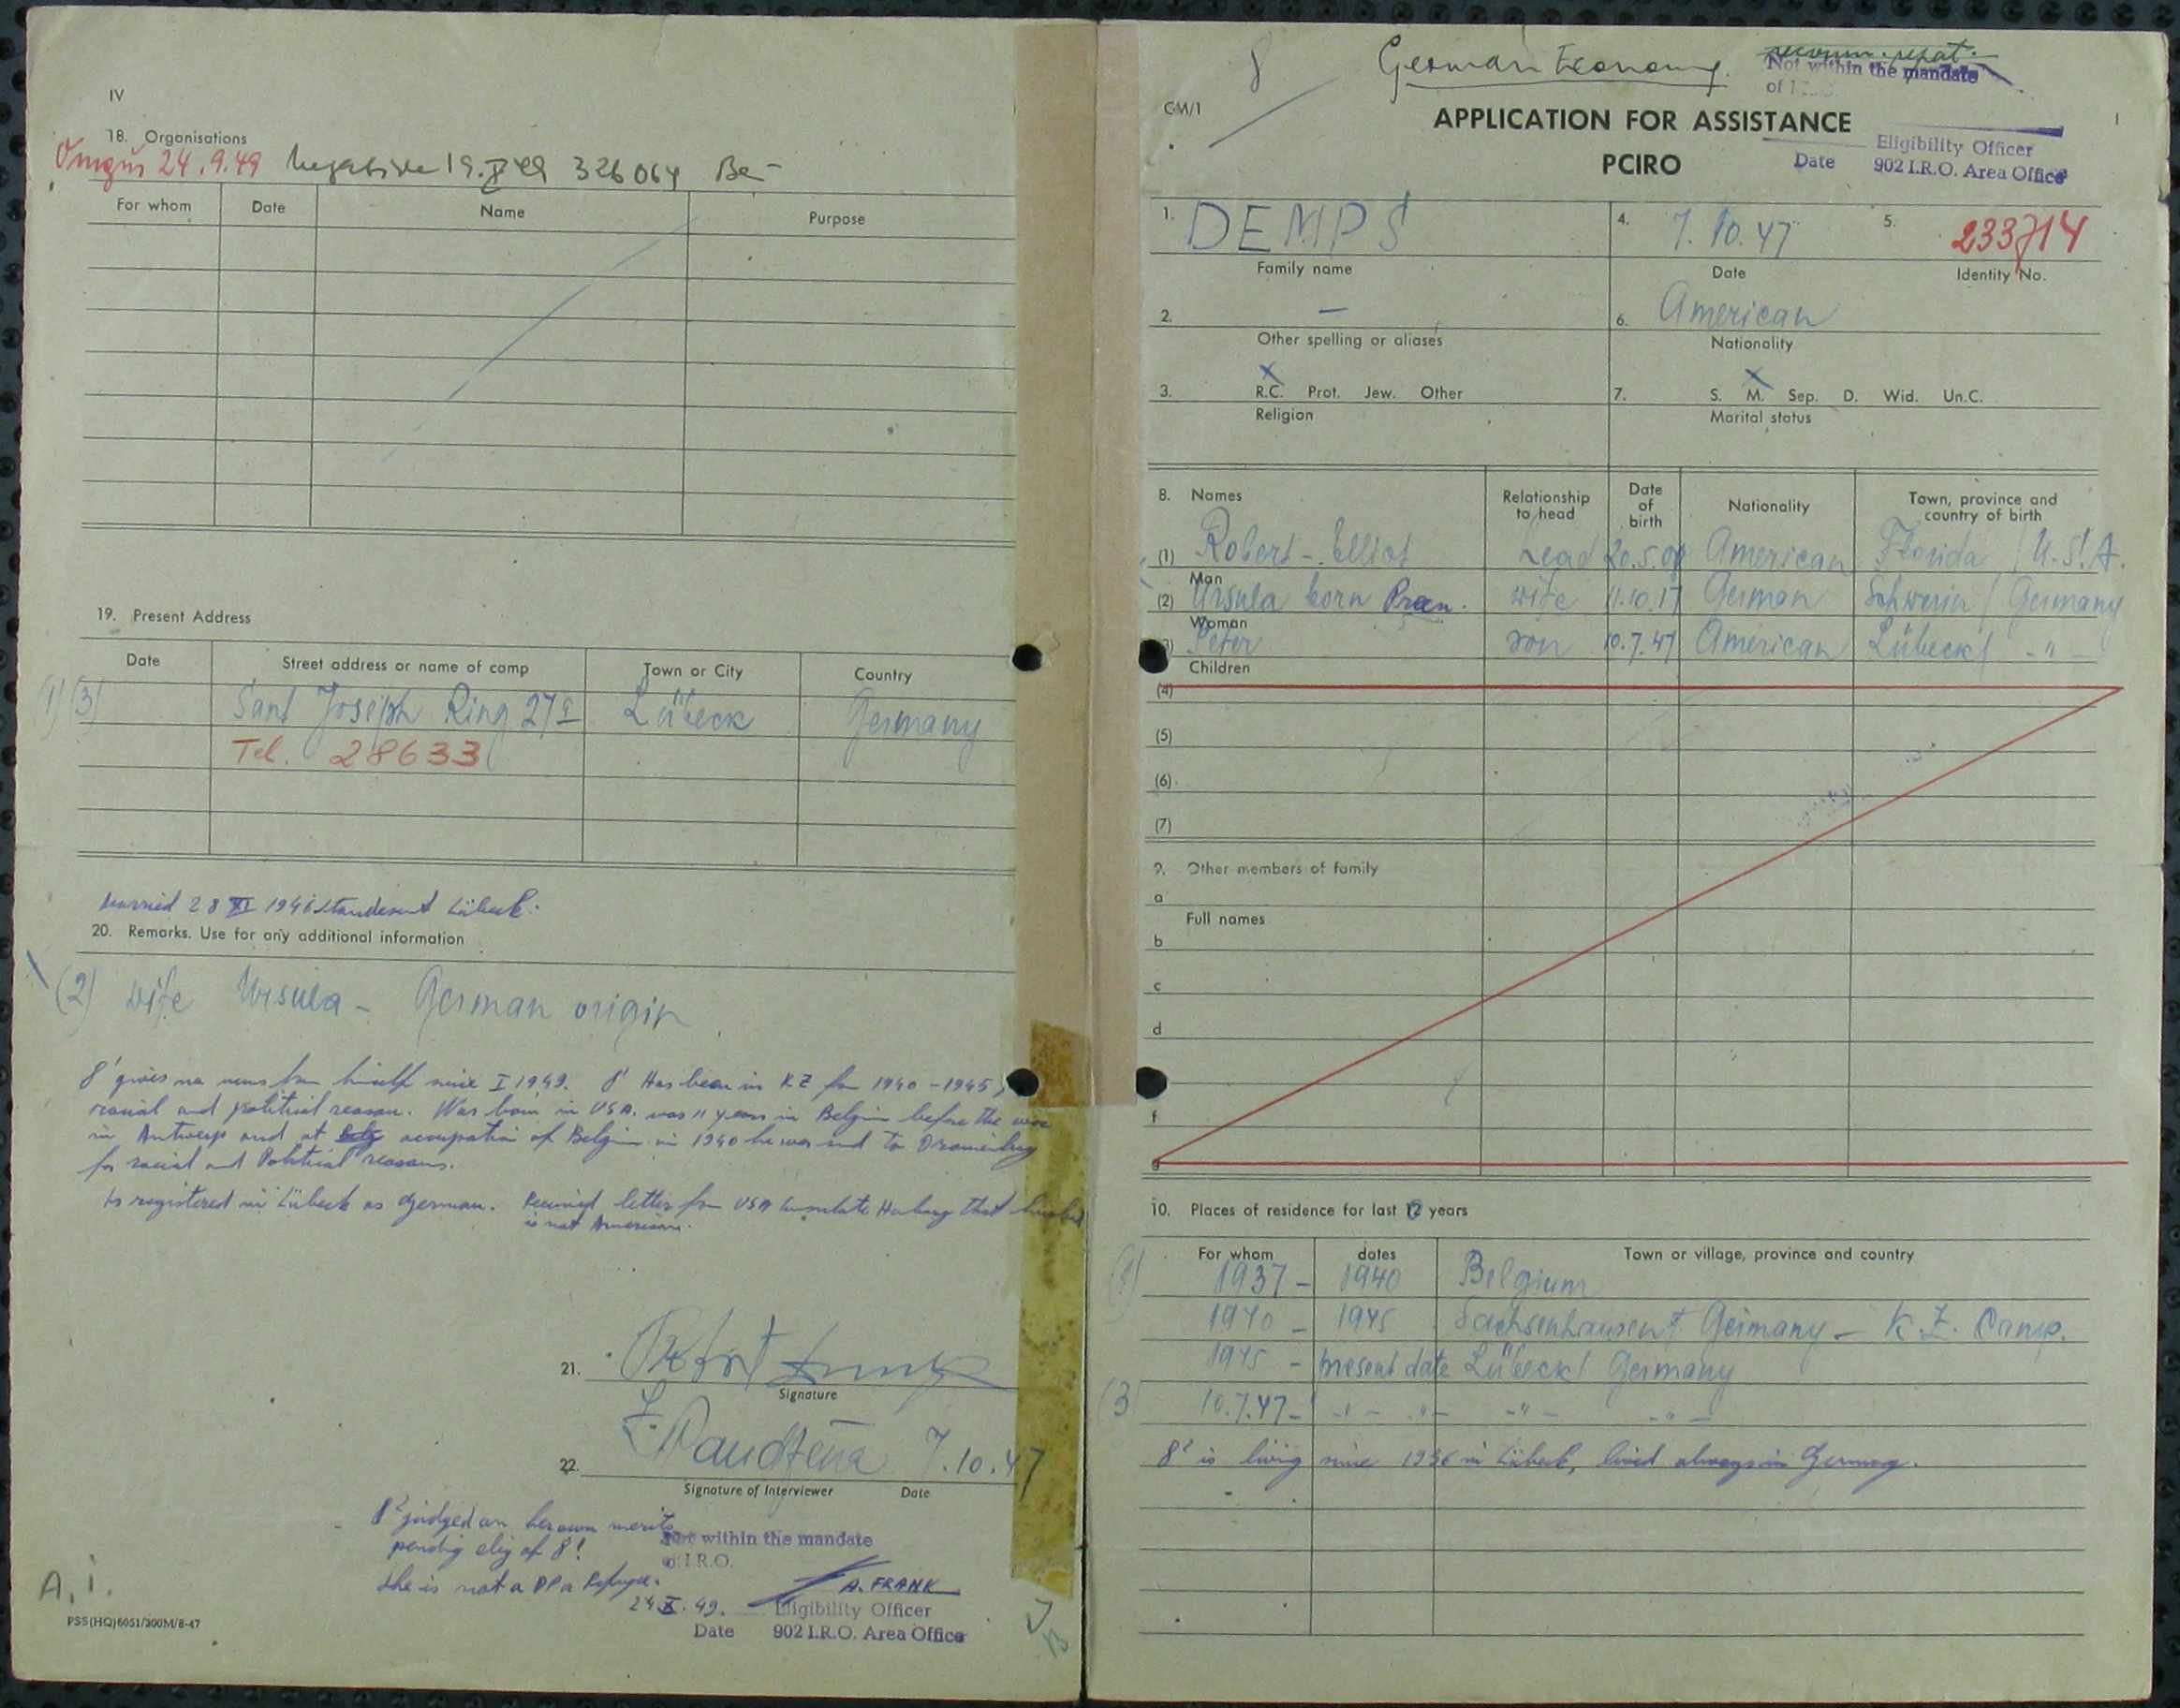 IV
18. Organisations
24.9.49 Negative 19.X 49 326064
For whom Date Name Purpose
19. Present Address
Date Street address or name of camp Town or City Country
1) (3) Sant Joseph Ring 27a Lübeck Germany
Tel. 28633
married 28 XI 1946 Standesamt Lübeck.
20. Remarks. Use for any additional information
(2) wife Ursula - German origin
8' gives no news from himself since I 1949. 8' Has been in KZ from 1940 - 1945,
racial and political reason. Was born in USA. was 11 years in Belgium before the war
in Antwerp and at occupation of Belgium in 1940 he was send to
for racial and Political reasons.
Is registered in Lübeck as German. Received letter from USA Consulate Hamburg that
is not American.
21.
Signature
22. 7.10.47
Signature of Interviewer Date
8² judged on her own merits
pending elig of 8'
she is not a DP or Refugee.
Not within the mandate
of I.R.O.
A. FRANK
24 X. 49. Eligibility Officer
Date 902 I.R.O. Area Office
A.i.
PSS(HQ)6051/300M/8-47
8
German Economy.
repat.
Not within the mandate
of I
CM/1
APPLICATION FOR ASSISTANCE
PCIRO
1
Eligibility Officer
Date 902 I.R.O. Area Office
1. DEMPS 4. 7.10.47 5. 233714
Family name Date Identity No.
2. — 6. American
Other spelling or aliases Nationality
X X
3. R.C. Prot. Jew. Other 7. S. M. Sep. D. Wid. Un.C.
Religion Marital status
8. Names Relationship to head Date of birth Nationality Town, province and country of birth
(1) Robert - Elliot head 20.5.00 American Florida / U.S.A.
Man
(2) Ursula born wife 11.10.17 German Schwerin / Germany
Woman
(3) Peter son 10.7.47 American Lübeck / - " -
Children
(4)
(5)
(6)
(7)
9. Other members of family
a
Full names
b
c
d
f
g
10. Places of residence for last 12 years
For whom dates Town or village, province and country
(1) 1937 - 1940 Belgium
1940 - 1945 Sachsenhausen / Germany - K.Z. Camp.
1945 - present date Lübeck / Germany
(3) 10.7.47 - - " - - " - - " - - " -
8² is living since 1936 in Lübeck, lived always in Germany.